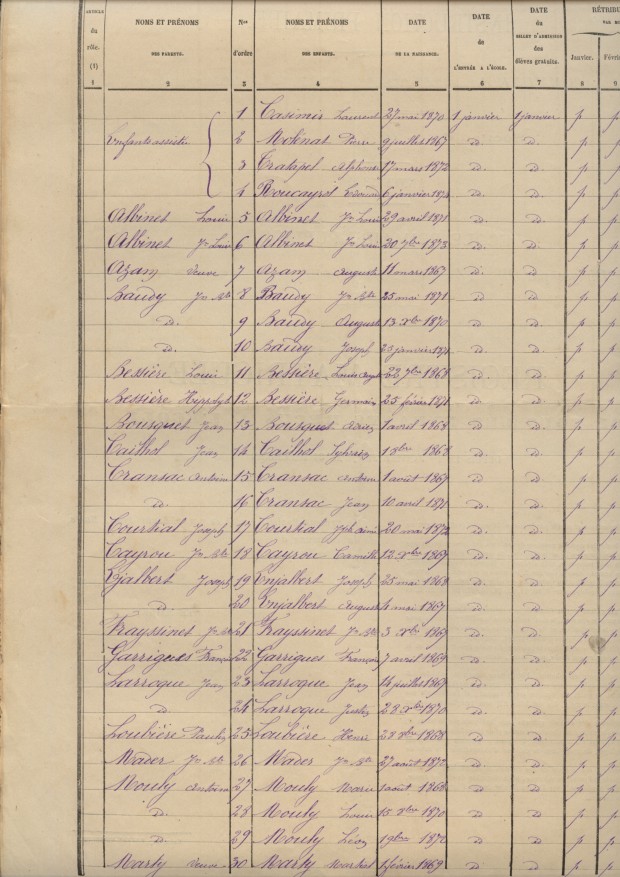 ARTICLE du rôle. (1) NOMS ET PRÉNOMS DES PARENTS. Nos d'ordre NOMS ET PRÉNOMS DES ENFANTS. DATE DE LA NAISSANCE. DATE de L'ENTRÉE A L'ÉCOLE. DATE du BILLET D'ADMISSION des élèves gratuits. RÉTRIBU PAR MO Janvier. Févrie
1 2 3 4 5 6 7 8 9
1 Casimir Laurent 27 mai 1870 1 janvier 1 janvier p p
Enfants assistés 2 Molinat Pierre 9 juillet 1867 d. d. p p
3 Alphonse 17 mars 1872 d. d. p p
4 Roucayrol Edouard 6 janvier d. d. p p
Albinet Louis 5 Albinet Jn Louis 29 avril 1871 d. d. p p
Albinet Jn Louis 6 Albinet Jn Louis 20 7bre 1873 d. d. p p
Azam veuve 7 Azam Auguste 11 mars 1867 d. d. p p
Baudy Jn Bte 8 Baudy Jn Bte 25 mai 1871 d. d. p p
d. 9 Baudy Auguste 13 xbre 1870 d. d. p p
d. 10 Baudy Joseph 23 janvier d. d. p p
Bessière Louis 11 Bessière Louis 22 7bre 1868 d. d. p p
Bessière Hyppolyte 12 Bessière Germain 25 février 1871 d. d. p p
Bousquet Jean 13 Bousquet Adrien 1 avril 1868 d. d. p p
Cailhol Jean 14 Cailhol Sylvain 1868 d. d. p p
Cransac Antoine 15 Cransac Antoine 1 août 1867 d. d. p p
d. 16 Cransac Jean 10 avril 1871 d. d. p p
Courtial Joseph 17 Courtial Jph Aimé 20 mai d. d. p p
Cayrou Jn Bte 18 Cayrou Camille 12 xbre 1867 d. d. p p
Enjalbert Joseph 19 Enjalbert Joseph 25 mai 1868 d. d. p p
d. 20 Enjalbert Auguste 4 mai 1867 d. d. p p
Frayssinet Jn Bte 21 Frayssinet Jn Bte 3 xbre 1867 d. d. p p
Garrigues François 22 Garrigues François 7 avril 1869 d. d. p p
Larroque Jean 23 Larroque Jean 14 juillet 1867 d. d. p p
d. 24 Larroque Justin 28 xbre 1870 d. d. p p
Loubière Paulin 25 Loubière Henri 28 8bre 1868 d. d. p p
Mader Jn Bte 26 Mader Jn Bte 27 août d. d. p p
Mouly Antoine 27 Mouly Marie 1 août 1868 d. d. p p
d. 28 Mouly Louis 15 1870 d. d. p p
d. 29 Mouly Léon 1 9bre 1870 d. d. p p
Marty veuve 30 Marty Martial 1 février 1869 d. d. p p